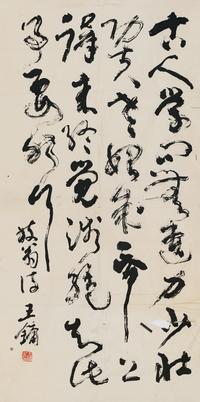 古人學問無遺力少壯
功夫老始成紙上
得來終覺淺絕知此
事要躬行
放翁詩 王鏞